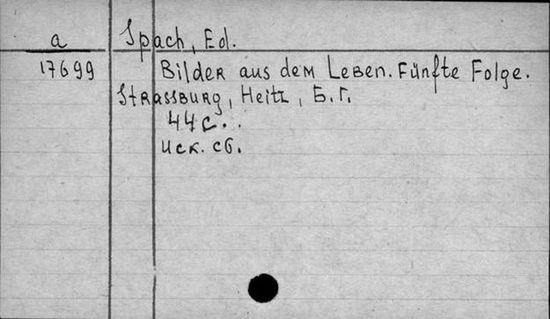 a
17699
Spach, Ed.
Bilder aus dem Leben. Fünfte Folge.
Strassburg, Heitz, Б.г.
44 с..
Иск. сб.